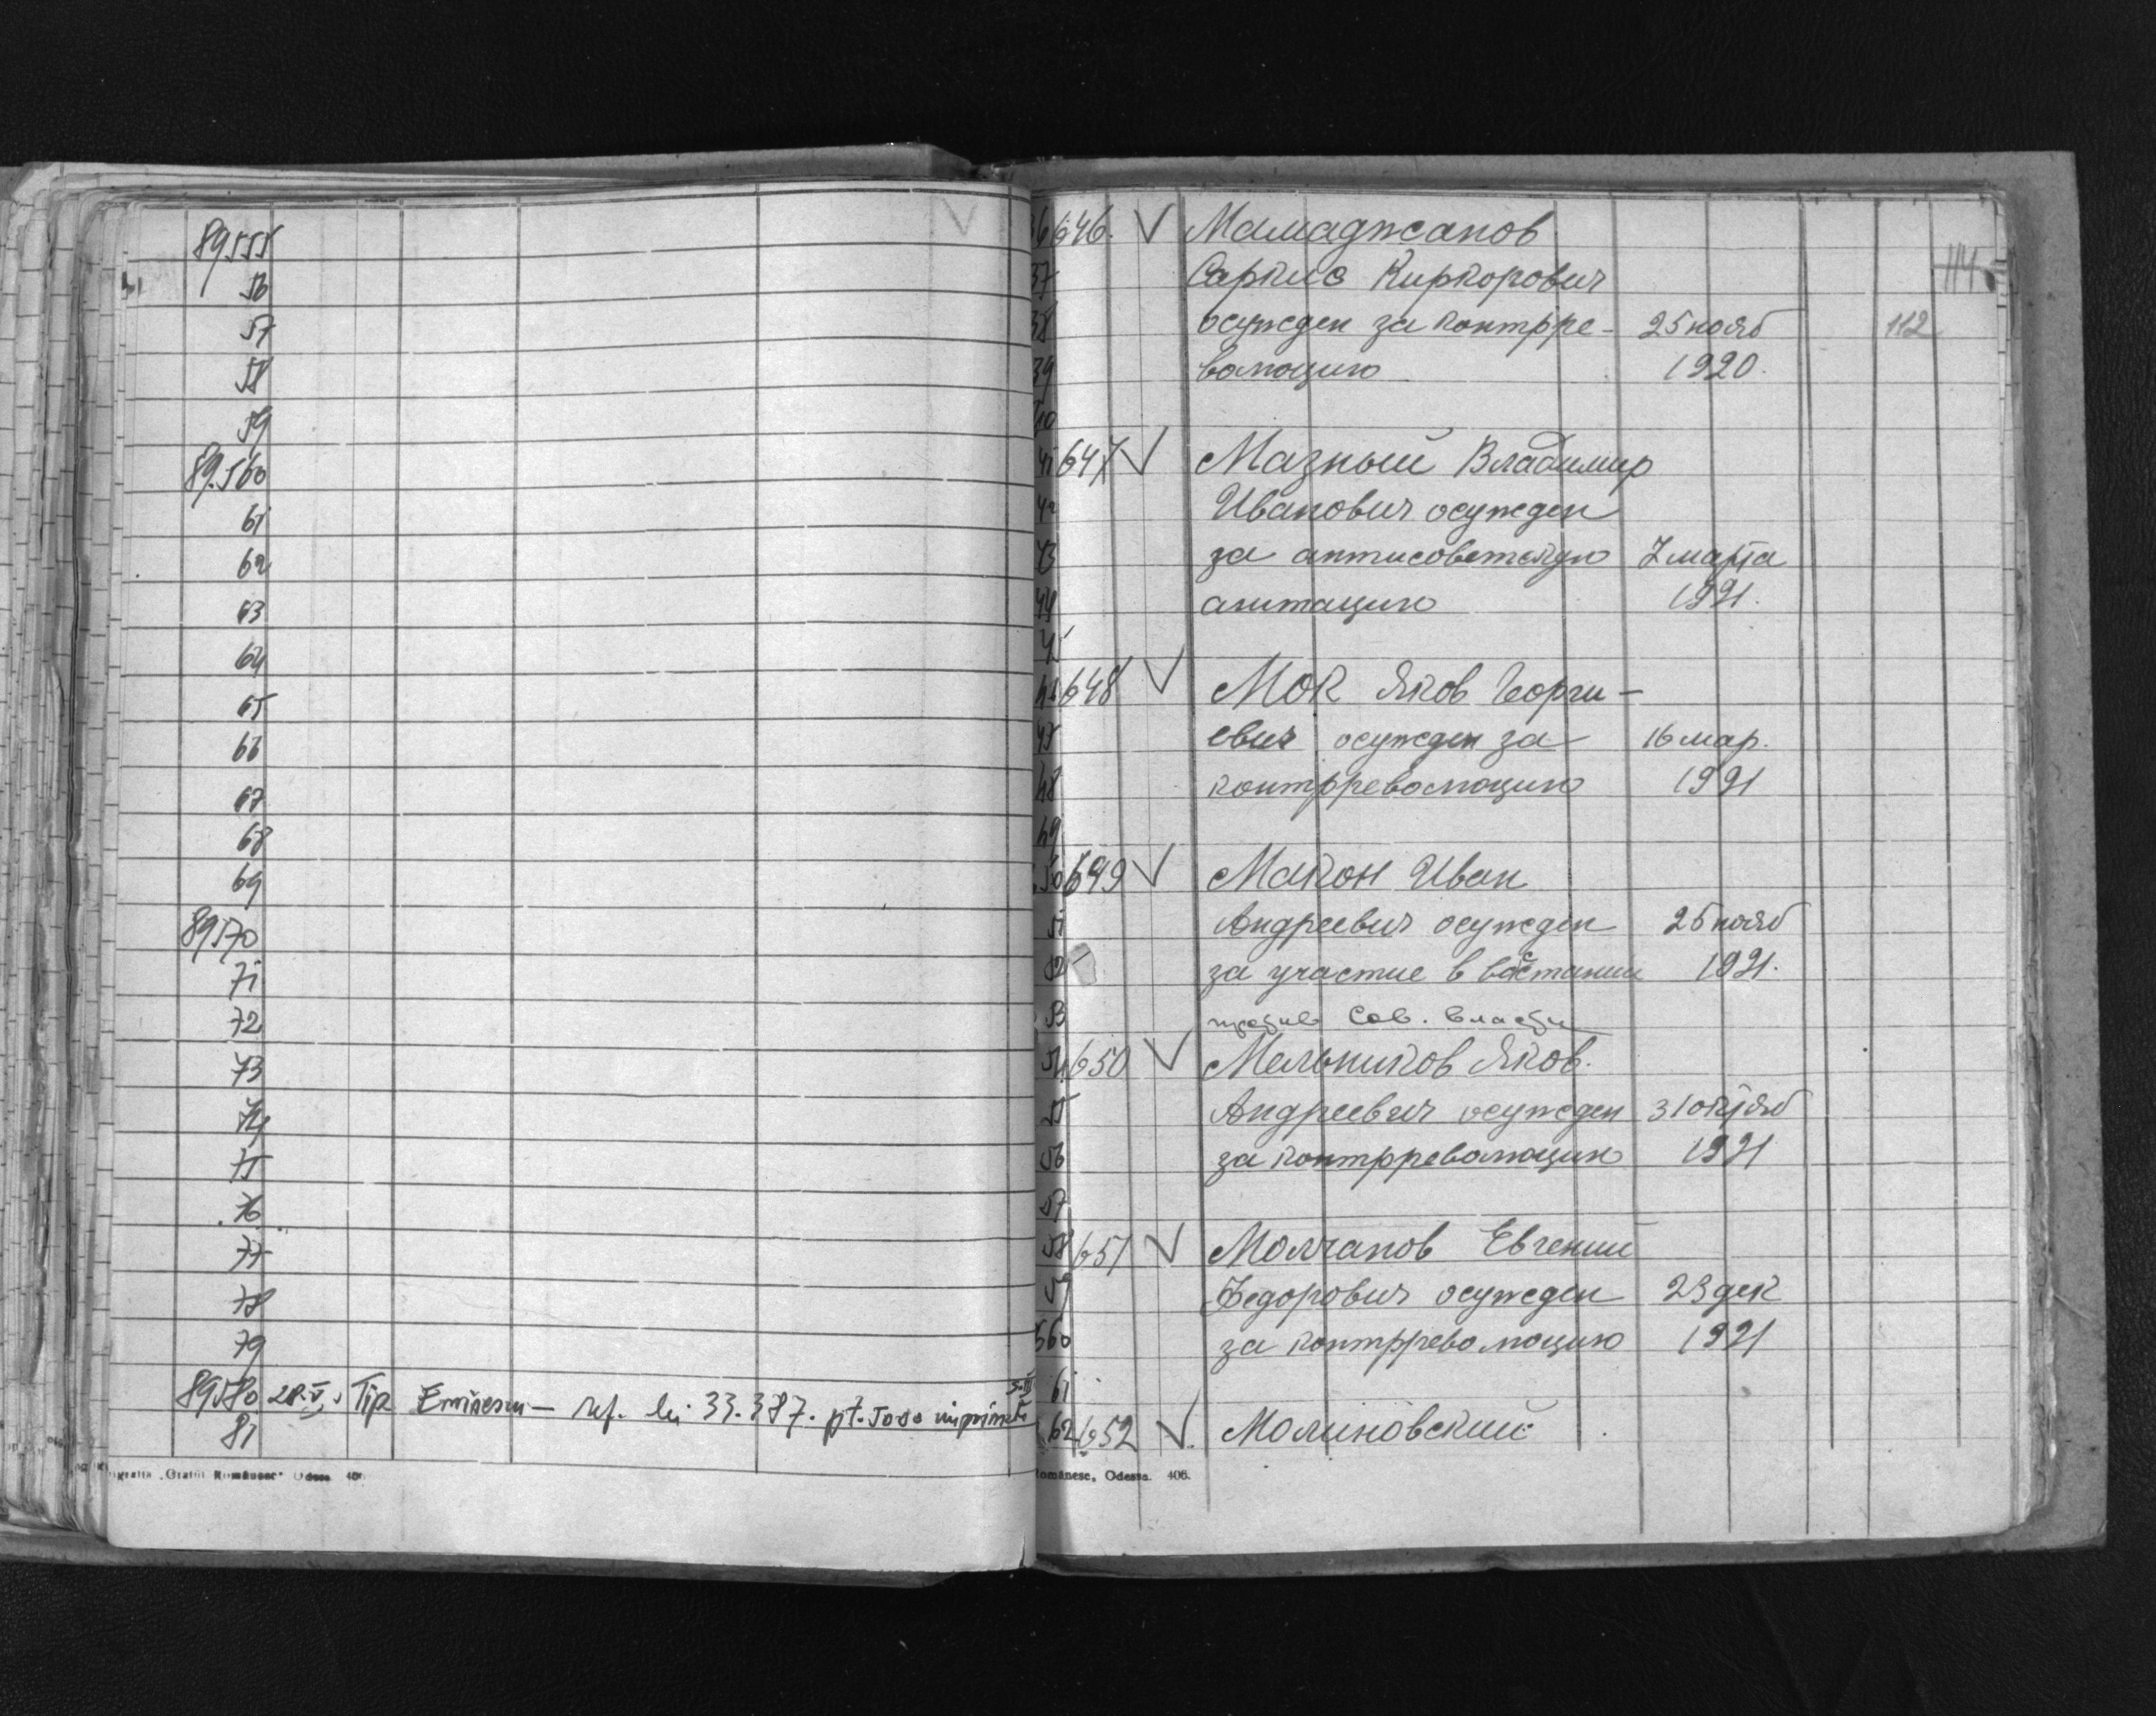 89555
56
57
58
59
89.560
61
62
63
64
65
66
67
68
69
89570
71
72
73
74
75
76
77
78
79
89580 28.V. Tip Eminescu — ref. lei 33.387. pt. 5000 imprimate
81
646. V Мамаджанов
37 Саркис Киркорович
38 осужден за контрре- 25 нояб 112
39 волюцию 1920.
40
41 647 V Мазный Владимир
42 Иванович осужден
43 за антисоветскую 7 марта
44 агитацию 1921.
45
648 V Мок Яков Георги-
47 евич осужден за 16 мар.
48 контрреволюцию 1921
49
50 649 V Макон Иван
51 Андреевич осужден 25 нояб
52 за участие в востании 1921.
53 против Сов. власти
54 650 V Мельников Яков.
55 Андреевич осужден 31 октяб
56 за контрреволюцию 1921
57
58 651 V Молчанов Евгений
59 Федорович осужден 23 дек
560 за контрреволюцию 1921
61
62 652 V. Молиновский
Românesc, Odessa. 406.